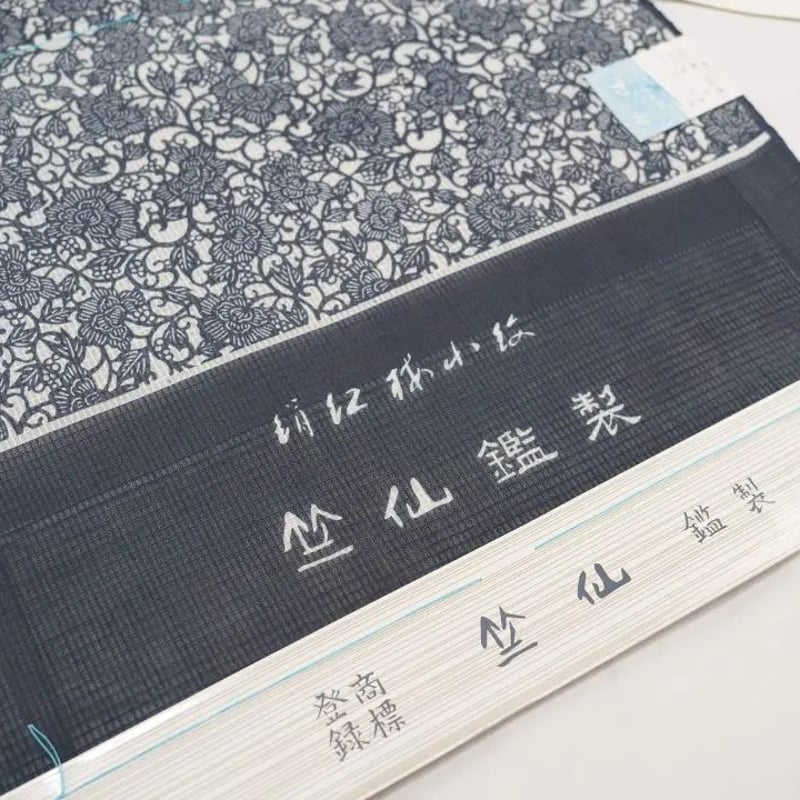 絹紅梅小紋
竺仙鑑製
竺仙 鑑製
登録
商標